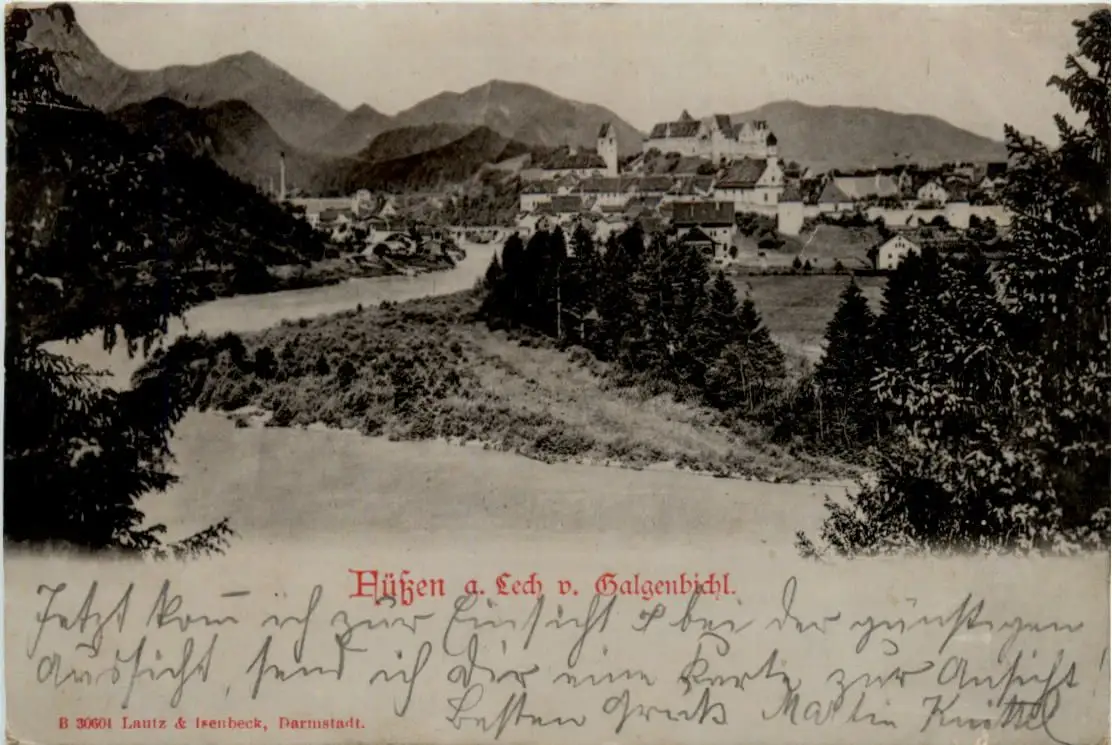 Füßen a. Lech v. Galgenbichl.
Jetzt kom̅ ich zur Einsicht & bei der günstigen
Aussicht, send ich Dir eine Karte zur Ansicht!
Besten Gruß Martin Knittel
B 30601 Lautz & Isenbeck, Darmstadt.